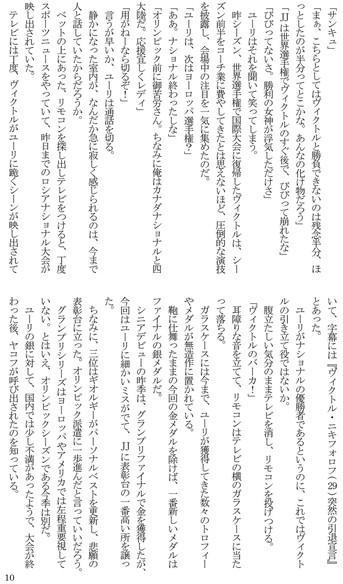 「サンキュ」
「まあ、こちらとしてはヴィクトルと勝負できないのは残念半分、ほ
っとしたのが半分ってとこかな。あんなの化け物だろう」
「JJは世界選手権でヴィクトルのすぐ後で、びびって崩れたな」
「びびってないさ。勝利の女神が浮気しただけさ」
ユーリはそれを聞いて笑ってしまう。
昨シーズン、世界選手権で国際大会に復帰したヴィクトルは、シー
ズン前半をコーチ業に費やしてきたとは思えないほど、圧倒的な演技
を披露し、会場中の注目を一気に集めたのだ。
「ユーリは、次はヨーロッパ選手権？」
「ああ。ナショナル終わったしな」
「オリンピック前に御苦労さん。ちなみに俺はカナダナショナルと四
大陸だ。応援宜しくレディ」
「用がねーなら切るぞ！」
言うが早いか、ユーリは通話を切る。
静かになった室内が、なんだか急に寂しく感じられるのは、今まで
人と話していたからだろうか。
ベットの上にあった、リモコンを探し出しテレビをつけると、丁度
スポーツニュースをやっていて、昨日までのロシアナショナル大会が
映し出されていた。
テレビには丁度、ヴィクトルがユーリに跪くシーンが映し出されて
いて、字幕には『ヴィクトル・ニキフォロフ(29)突然の引退宣言』
とあった。
ユーリがナショナルの優勝者であるというのに、これではヴィクト
ルの引き立て役ではないか。
腹立たしい気分のままテレビを消し、リモコンを投げつける。
「ヴィクトルのバーカ！」
耳障りな音を立てて、リモコンはテレビの横のガラスケースに当た
って落ちる。
ガラスケースには今まで、ユーリが獲得してきた数々のトロフィー
やメダルが無造作に置かれている。
鞄に仕舞ったままの今回の金メダルを除けば、一番新しいメダルは
ファイナルの銀メダルだ。
シニアデビューの昨季は、グランプリファイナルで金を獲得したが、
今回はユーリに細かいミスがでて、JJに表彰台の一番高い所を譲っ
た。
ちなみに、三位はギオルギーがパーソナルベストを更新し、悲願の
表彰台に立った。オリンピック派遣に一歩進んだと言っていいだろう。
グランプリシリーズはヨーロッパやアメリカでは左程重要視して
いない。とはいえ、オリンピックシーズンである今季は別だ。
ユーリの銀に対して、国内では少し不満があったようで、大会が終
わった後、ヤコフが呼び出されたのを知っている。
10